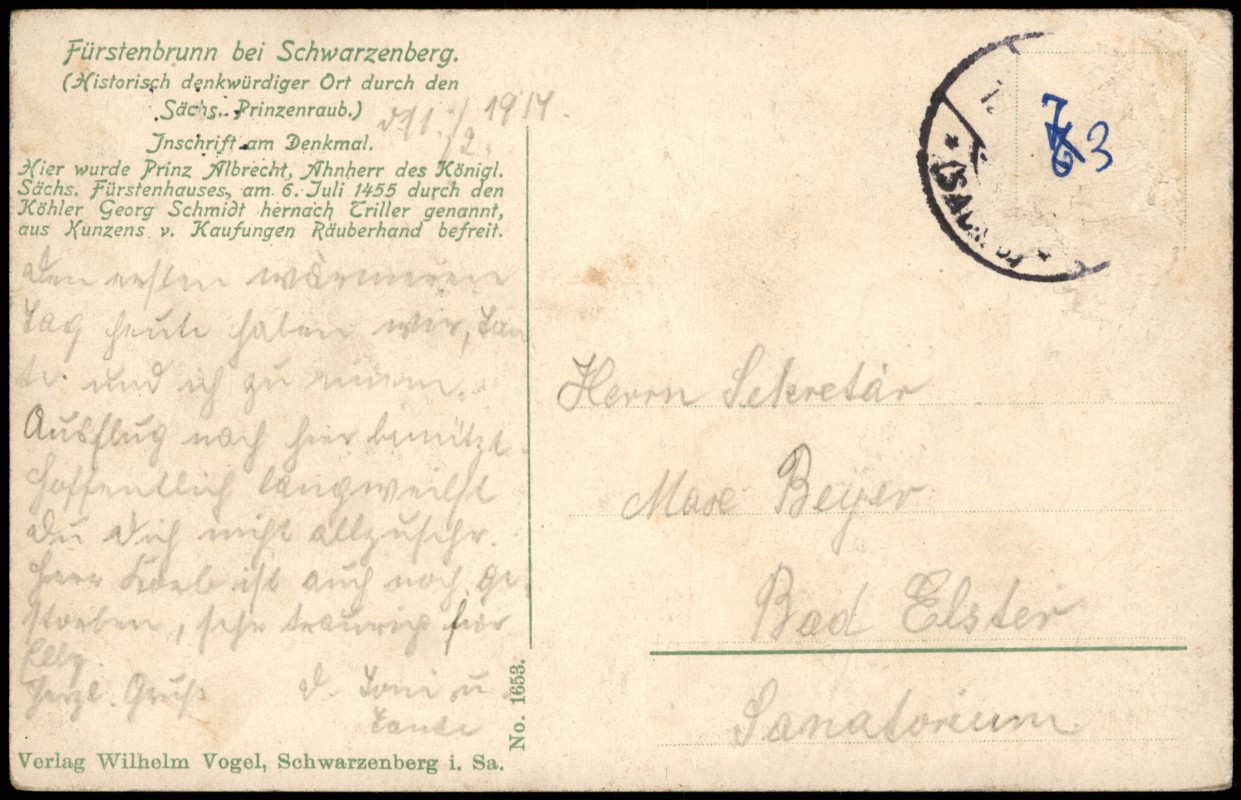 Fürstenbrunn bei Schwarzenberg.
(Historisch denkwürdiger Ort durch den
Sächs. Prinzenraub.)
d 11./2. 1914.
Inschrift am Denkmal.
Hier wurde Prinz Albrecht, Ahnherr des Königl.
Sächs. Fürstenhauses, am 6. Juli 1455 durch den
Köhler Georg Schmidt hernach Triller genannt,
aus Kunzens v. Kaufungen Räuberhand befreit.
Den ersten wärmeren
Tag heute haben wir, Tan
te und ich zu einem
Ausflug nach hier benützt.
Hoffentlich langweilst
Du Dich nicht allzusehr.
Herr ist auch noch ge
storben, sehr traurig für
Elly.
Herzl. Gruß d. Toni u.
Tante
Verlag Wilhelm Vogel, Schwarzenberg i. Sa.
No. 1653.
7
63
Herrn Sekretär
Max Beyer
Bad Elster
Sanatorium